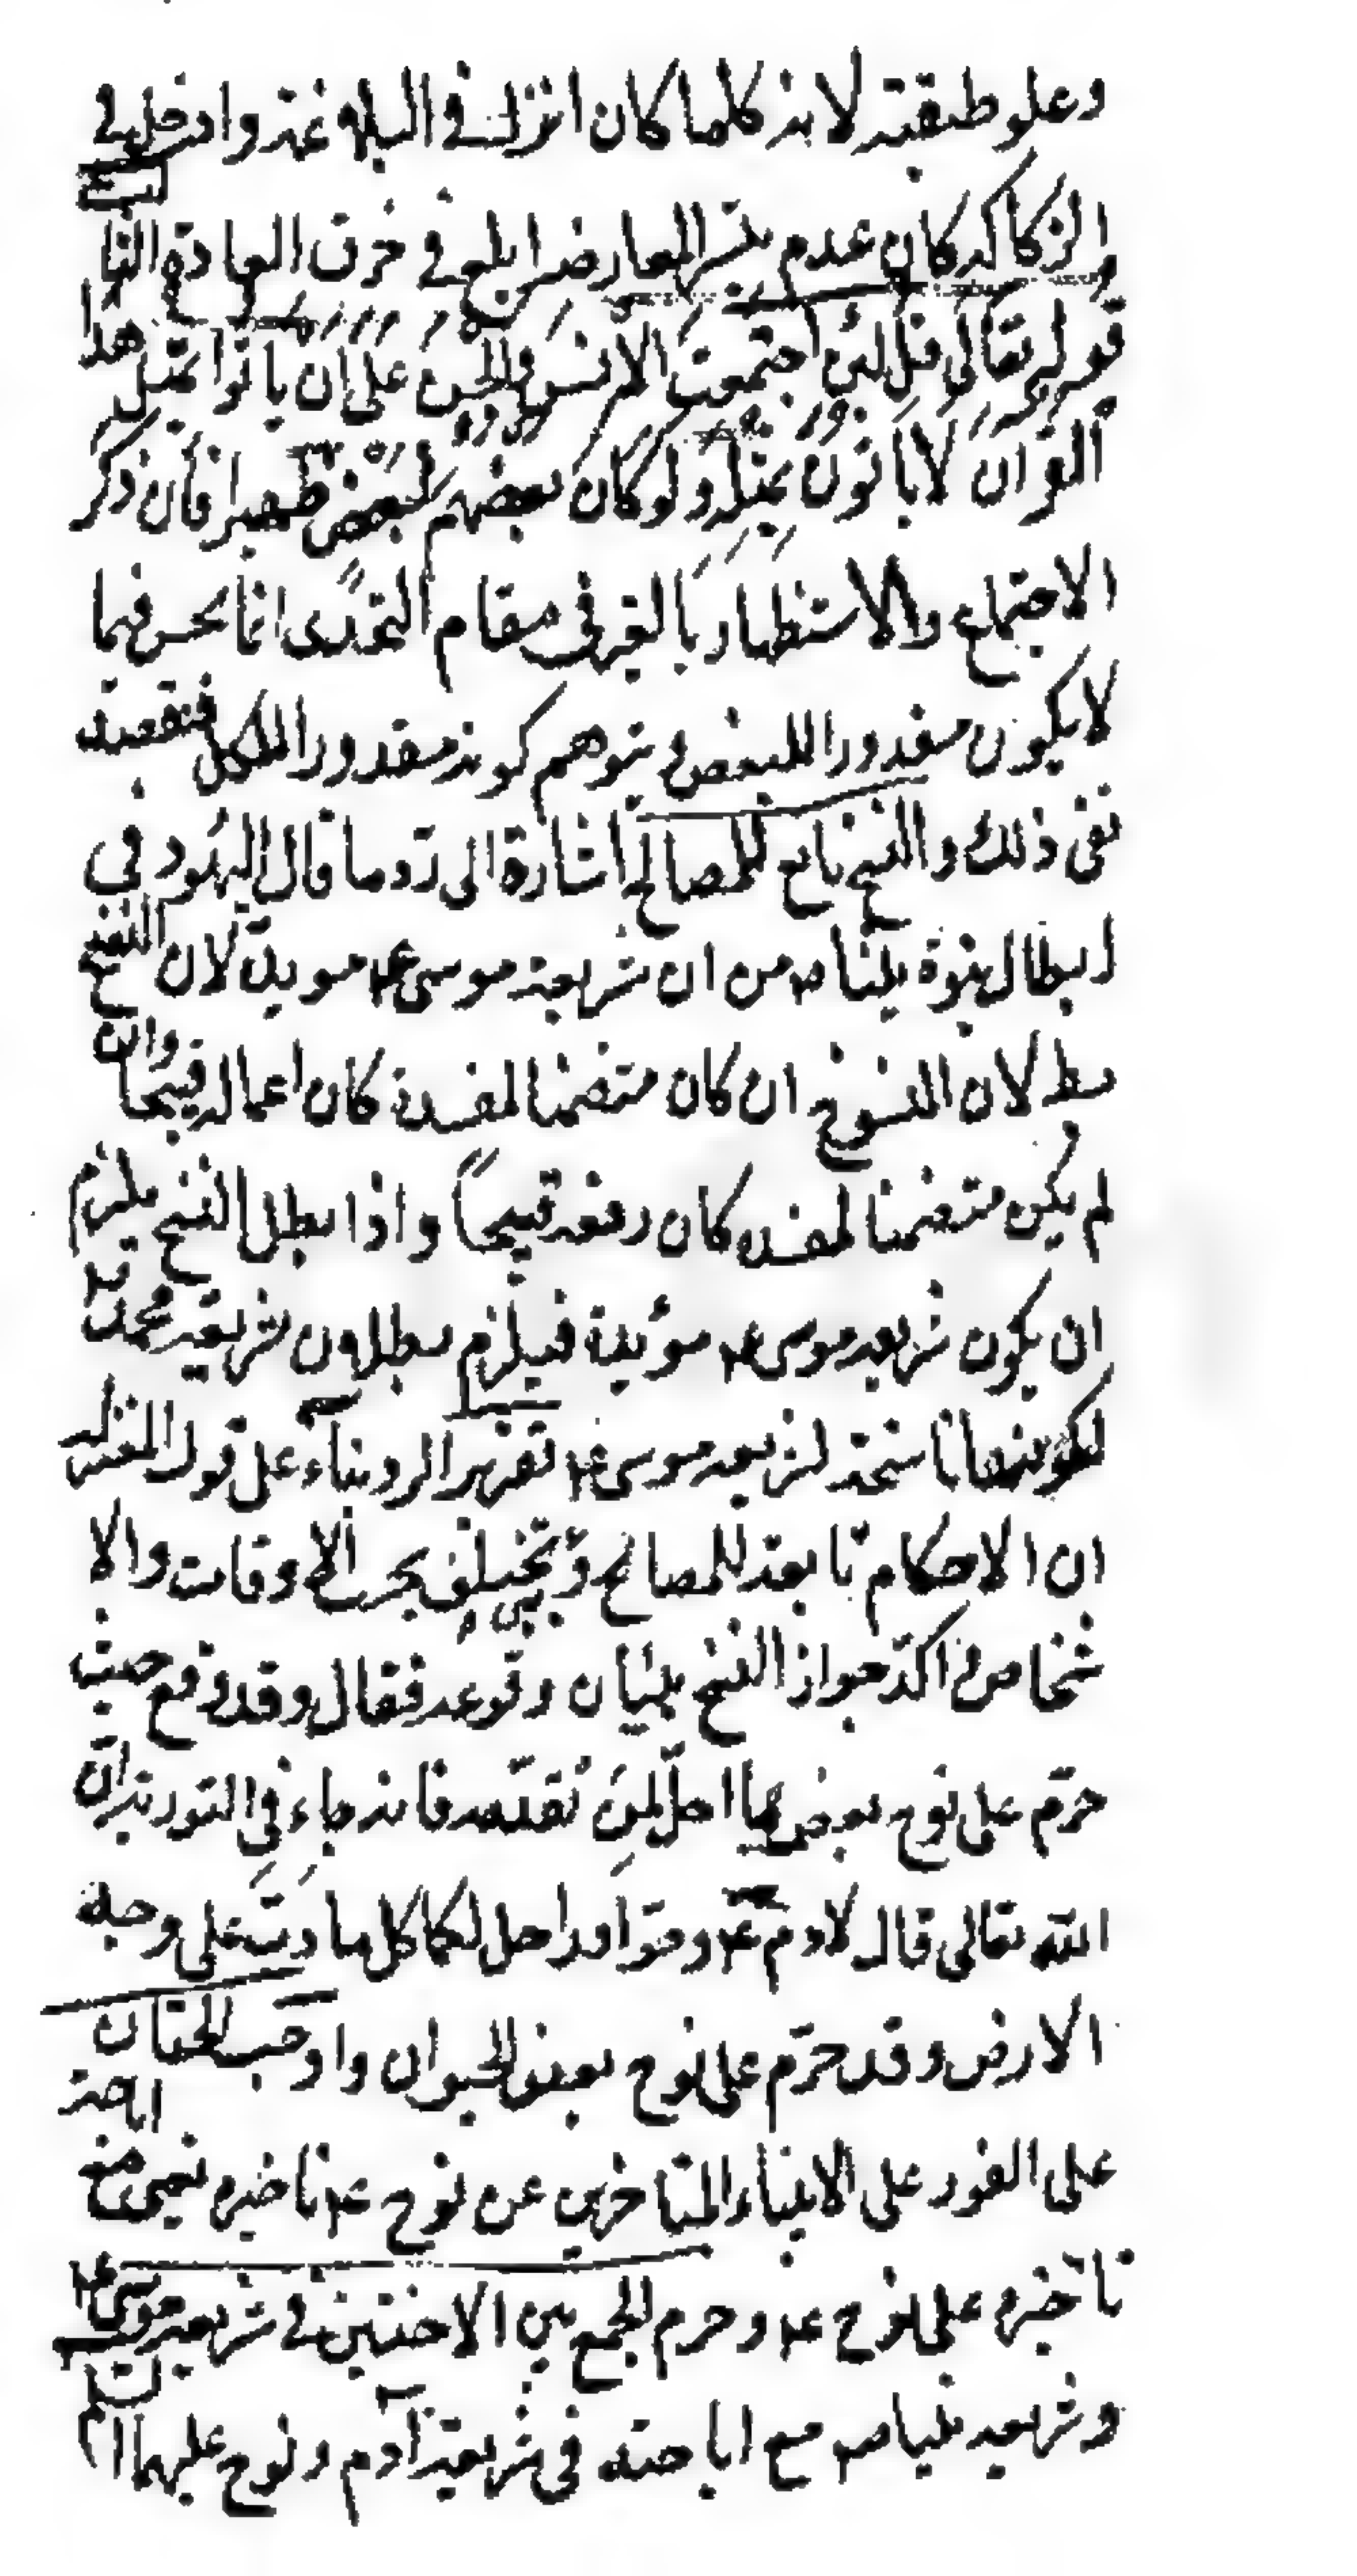 وعلو طبقته لانه كلما كان انزل في البلاغة وادخل في
الركاكة كان عدم تيسر المعارضة ابلغ في خرق العادة الثانى
قوله تعالى قل لئن اجتمعت الانس والجن على ان ياتوا بمثل هذا
القران لا ياتون بمثله ولو كان بعضهم لبعض ظهيرا فان ذكر
الاجتماع والاستظهار بالغير في مقام التحدى انما يحسن فيما
لا يكون مقدورا للبعض ويتوهم كونه مقدورا للكل فقصد
نفى ذلك والنسخ تابع للمصالح اشارة الى رد ما قال اليهود في
ابطال نبوة نبينا ص من ان شريعة موسى ع م موبدة لان النسخ
بط لان المنسوخ ان كان متضمنا لمفسدة كان اعماله قبيحا وان
لم يكن متضمنا لمفسده كان رفعه قبيحاً واذا بطل النسخ يلزم
ان يكون شريعه موسى ع م مؤبدة فيلزم بطلان شريعة محمد
لكونها ناسخة لشريعه موسى ع م تقرير الرد بناء على قول المعتزلة
ان الاحكام تابعة للمصالح وهى تختلف بحسب الاوقات والا
شخاص ثم اكد جواز النسخ ببيان وقوعه فقال وقد وقع حيث
حرّم على نوح بعض ما احل لمن تقدمه فانه جاء في التورية ان
الله تعالى قال لادم ع م وحوا قد احل لكما كل ما دب على وجه
الارض وقد حرّم على نوح بعض الحيوان واوجب الختان
على الفور على الانبياء المتاخرين عن نوح ع م تاخيره يعنى مع اباحة
تاخيره على نوح ع م وحرم الجمع بين الاختين في شريعة موسى ع م
وشريعه نبينا ص مع اباحته في شريعة آدم ونوح عليهما السلام